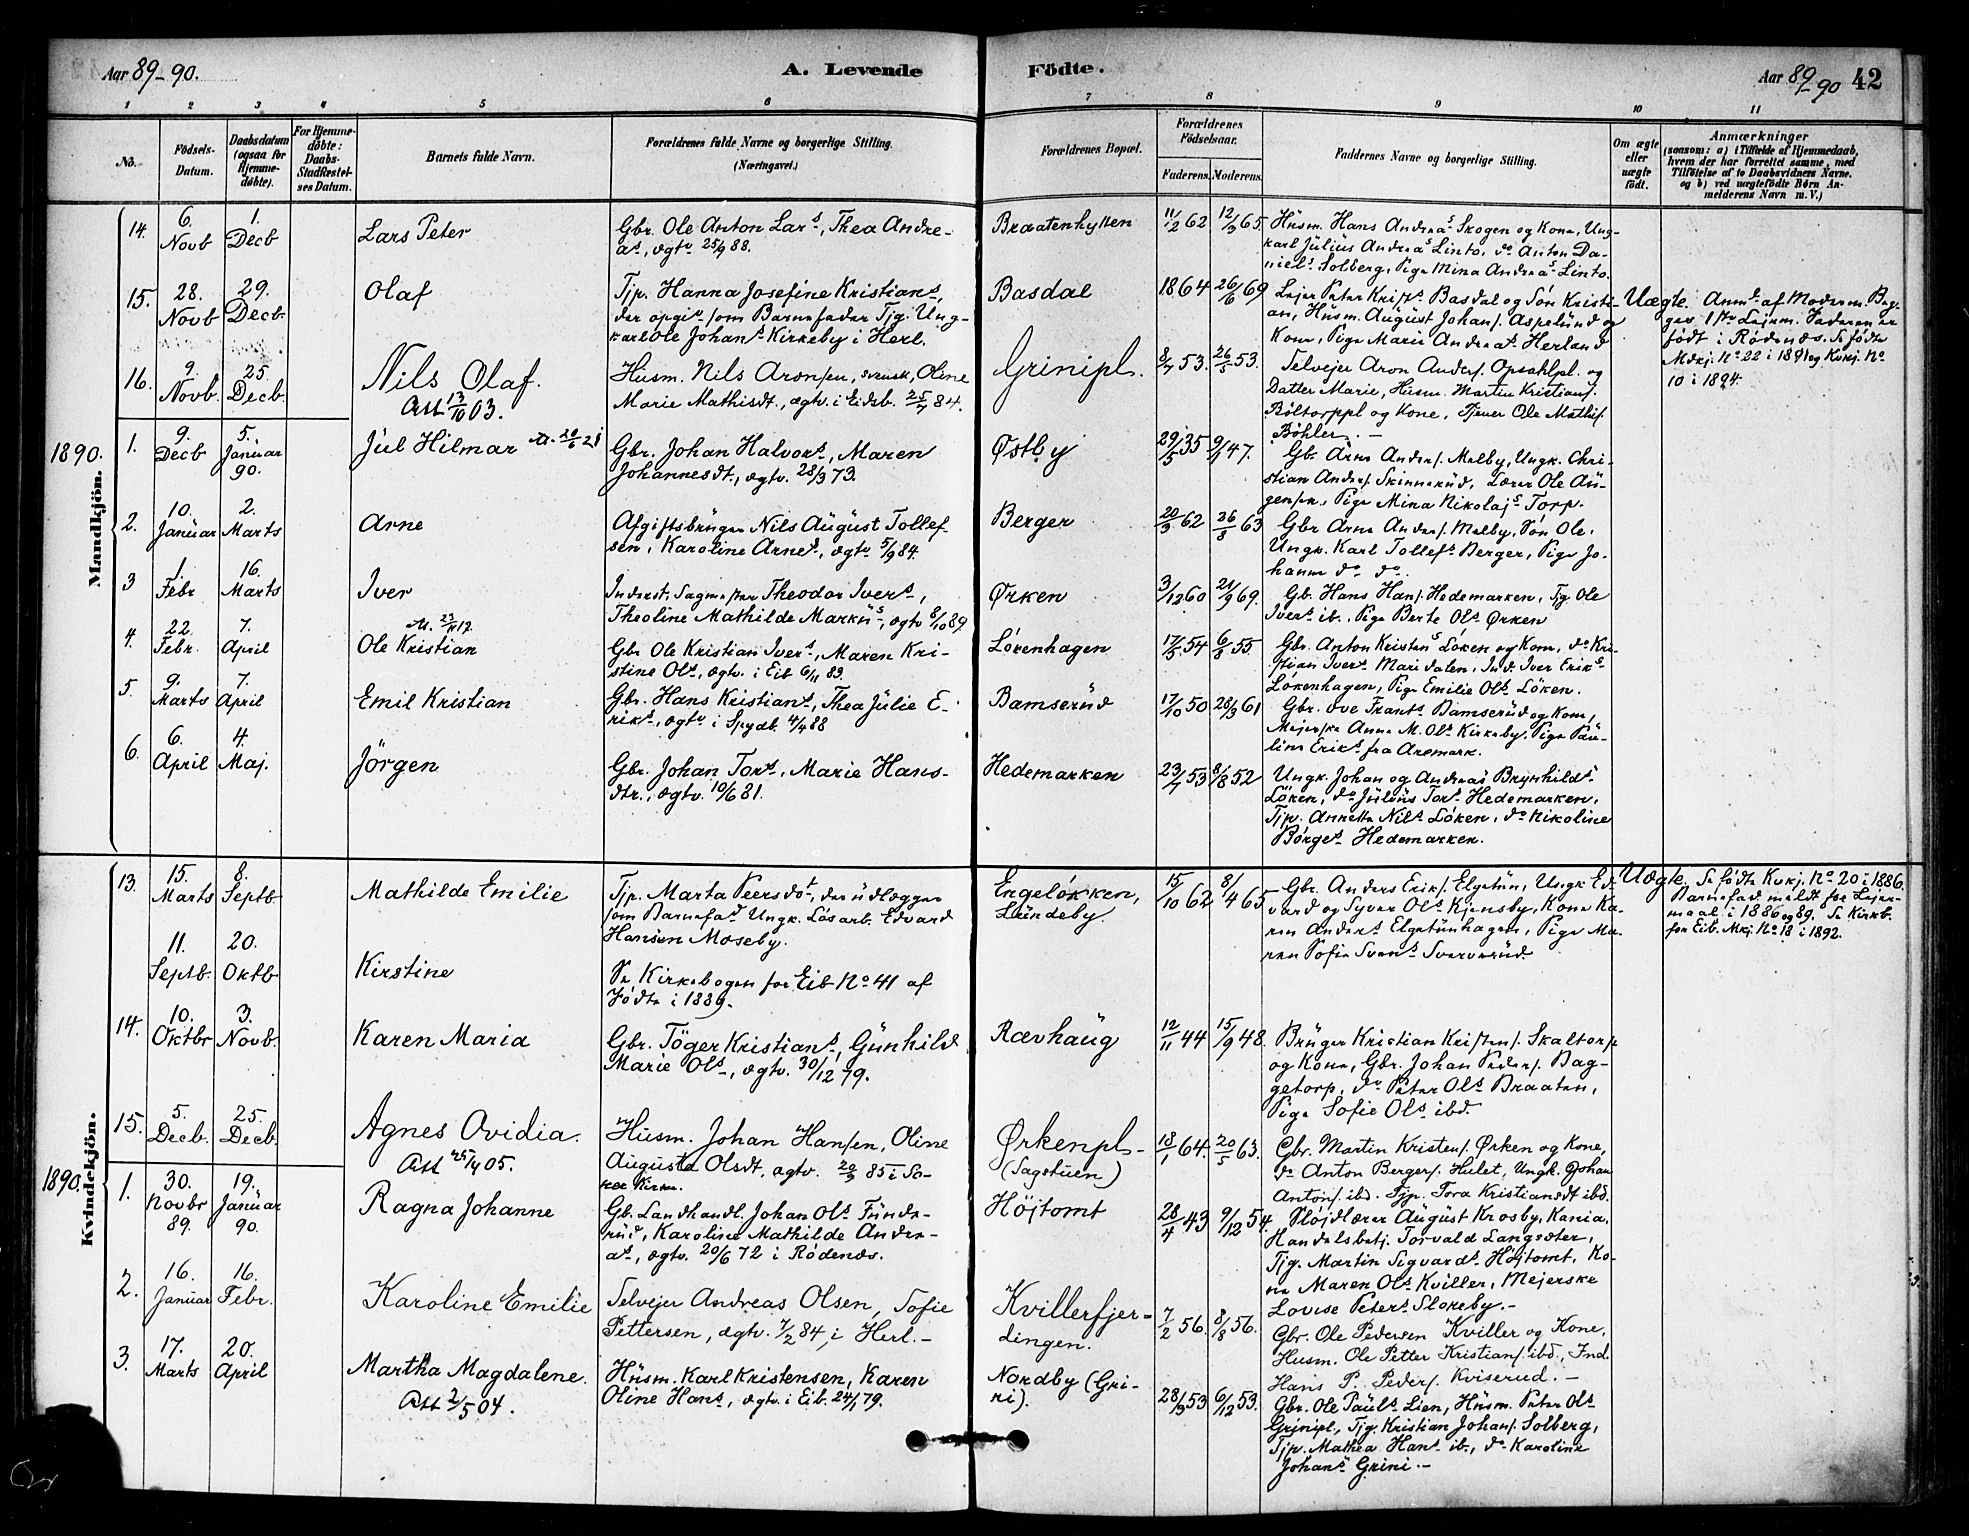 Aar 89-90.
A. Levende
Födte.
Aar 89-90
42
1 2 3 4 5 6 7 8 9 10 11
No.
Födsels-Datum.
Daabsdatum (ogsaa for Hjemme-döbte).
For Hjemme-döbte: Daabs-Stadfæstel-ses Datum.
Barnets fulde Navn.
Forældrenes fulde Navne og borgerlige Stilling. (Næringsvei.)
Forældrenes Bopæl.
Forældrenes Födselsaar.
Faderens. Moderens.
Faddernes Navne og borgerlige Stilling.
Om ægte eller uægte födt.
Anmærkninger
(saasom: a) i Tilfælde af Hjemmedaab, hvem der har forrettet samme, med Tilföielse af to Daabsvidners Navne. og b) ved uægtefödte Börn An-melderens Navn m. V.)
Mandkjön.
14. 6. Novb 1. Decb Lars Peter
Gbr. Ole Anton Lars, Thea Andre-
as, ægtv 25/9 88.
Braatenhytten 11/12 62 12/9 65
Husm. Hans Andreas Skogen og Kone, Ung-
karl Julius Andreas Linto, do Anton Da-
niels Solberg, Pige Mina Andreas Linto.
15. 28. Novb 29. Decb. Olaf
Tjp. Hanna Josefine Kristians,
der opgis som Barnefader Tjg. Ung-
karl Ole Johans Kirkeby i Herl.
Basdal 1864 26/6 69
Lejer Peter Krists Basdal og Søn Kristi-
an, Husm. August Johans. Aspelund og
Kone, Pige Marie Andreas Herland
Uægte. Anm. af Moderen. Beg-
ges 1ste Lejerm. Faderen er
født i Rødenæs. Se fødte
Mdkj. No 22 i 1891 og Kvkj. No
10 i 1894.
16. 9. Novb. 25. Decb. Nils Olaf.
Att 13/10 03.
Husm. Nils Aronsen, svensk, Oline
Marie Mathisdt., ægtv. i Eidsb. 25/7 84.
Grinipl. 8/7 53. 26/5 53.
Selvejer Aron Anders. Opsahlpl. og
Datter Marie, Husm. Martin Kristians.
Böltorppl og Kone, Tjener Ole Mathis.
Böhler. -
1890.
1. 9. Decb 5. Januar 90. Jul Hilmar At. 20/6 21
Gbr. Johan Halvors, Maren
Johannesdt., ægtv. 28/3 73.
Østby 29/5 35 9/1 47.
Gb. Arne Anders. Melby, Ungk. Chri-
stian Anders. Skinnerud, Lærer Ole Au-
gensen, Pige Mina Nikolajs Torp.
2. 10. Januar 2. Marts Arne
Afgiftsbruger Nils August Tollef-
sen, Karoline Arnes, ægtv 5/9 84.
Berger 20/3 62 26/8 63
Gbr Arne Anders. Melby, Søn Ole,
Ungk. Karl Tollefs Berger, Pige Jo-
hanne do do.
3 1. Febr 16. Marts Iver
Inderst, Sagmester Theodor Ivers,
Theoline Mathilde Markus, ægtv 8/10 89
Ørken 3/12 60 21/9 69.
Gb. Hans Hans. Hedemarken, Tjg Ole
Ivers ib., Pige Berte Ols Ørken
4. 22. Febr. 7. April At. 23/11 17. Ole Kristian
Gbr Ole Kristian Ivers, Maren Kri-
stine Ols, ægtv. i Eib 6/11 83.
Lörenhagen 17/5 54 6/8 55
Gbr. Anton Kristens Löken og Kone, do Kri-
stian Ivers Mari dalen, Ind. Iver Eriks
Lökenhagen, Pige Emilie Ols Löken.
5. 9. Marts 7. April Emil Kristian
Gbr. Hans Kristians, Thea Julie E-
riks, ægtv i Spydb. 4/4 88
Bamserud 17/10 50 28/3 61
Gbr. Ove Frants Bamserud og Kone,
Mejerske Anna M. Ols Kirkeby, Pige Pau-
line Eriks fra Aremark.
6. 6. April 4. Maj. Jörgen
Gbr. Johan Tors, Marie Hans-
dtr., ægtv. 10/6 81.
Hedemarken 23/7 53 8/8 52
Ungk. Johan og Andreas Brynhilds
Löken, do Julius Tors Hedemarken,
Tjp. Annette Nils Löken, do Nikoline
Börges Hedemarken.
Kvindekjön.
13. 15. Marts 8. Septb Mathilde Emilie
Tjp. Marta Peersdt, der udlægger
som Barnefad Ungk. Løsarb. Edvard
Hansen Moseby.
Engelökken, Lundeby. 15/10 62 8/4 65
Gbr. Anders Eriks. Elgetun, Ungk Ed-
vard og Syver Ols Kjensby, Kone Ka-
ren Anders Elgetunhagen, Pige Ma-
ren Sofie Svens Svarverud
Uægte. Se fødte Kvkj. No 20 i 1886.
Barnefad. meldt for Lejer-
maal i 1886 og 89. Se Kirkb.
for Eib. Mkj. No 18 i 1892.
11. Septb. 20. Oktb Kirstine
Se Kirkebogen for Eib No 41 af
Födte i 1889.
14. 10. Oktbr 3. Novb. Karen Maria
Gbr. Töger Kristians, Gunhild
Marie Ols, ægtv. 30/12 79.
Rævhaug 12/11 44 15/9 48.
Bruger Kristian Kristens. Skaltorp
og Kone, Gbr. Johan Peders. Bag-
getorp, do Peter Ols Braaten,
Pige Sofie Ols ibd.
15. 5. Decb. 25. Decb. Agnes Ovidia.
Att 25/4 05.
Husm. Johan Hansen, Oline
Augusta Olsdt, ægtv. 20/3 85 i
Ørkenpl- (Sagstuen) 18/1 64. 20/5 63.
Gbr. Martin Kristens. Ørken og Kone,
do Anton Bergers. Hulet, Ungk. Johan
Antons. ibd. Tjp. Tora Kristiansdt ibd.
1890.
1. 30. Novbr 89. 19. Januar 90. Ragna Johanne
Gb. Landhandl. Johan Ols Funde-
rud, Karoline Mathilde Andre-
as, ægtv. 20/6 72 i Rödenæs.
Höjtomt 28/4 43 9/12 54.
Slöjdlærer August Krosby, Kania,
Handelsbetj. Torvald Langsæter,
Tjg. Martin Sigvards Höjtomt, Ko-
ne Maren Ols Kviller, Mejerske
Lovise Peters Sloreby. -
2. 16. Januar 16. Febr. Karoline Emilie
Selvejer Andreas Olsen, Sofie
Pettersen, ægtv. 7/2 84, i Herl. -
Kvillerfjer-
dingen. 7/2 56. 8/8 56.
Gbr. Ole Pedersen Kviller og Kone,
Husm. Ole Petter Kristians. ibd., Ind.
Hans P. Peders. Kviserud. -
3. 17. Marts 20. April Martha Magdalene.
Att 2/5 04.
Husm. Karl Kristensen, Karen
Oline Hans, ægtv. i Eib. 24/1 79.
Nordby (Gri-
ni). 28/9 53 6/12 53.
Gbr. Ole Pauls Lien, Husm. Peter Ols
Grinipl, Tjg. Kristian Johans. Solberg,
Tjp. Mathea Hans ib., do Karoline
Johans Grini. -